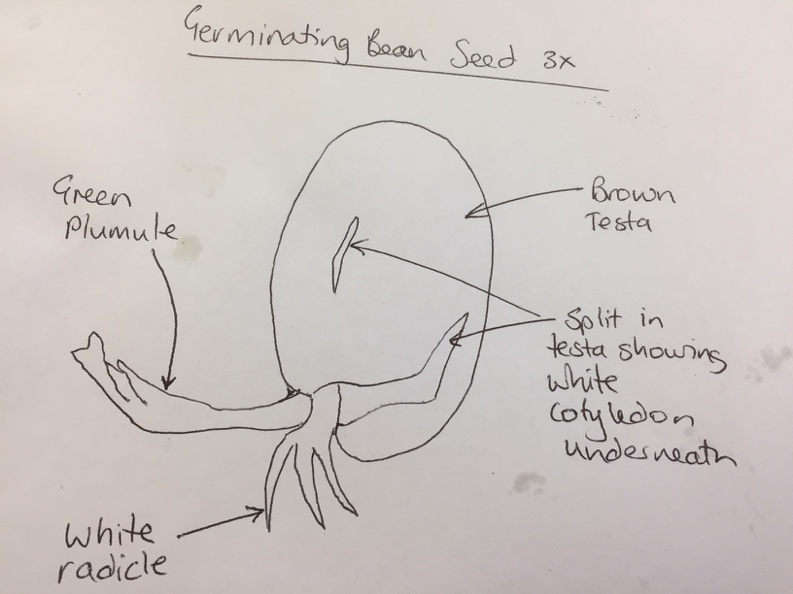 Germinating Bean Seed 3x
Green
Plumule
Brown
Testa
Split in
testa showing
white
cotyledon
underneath
White
radicle